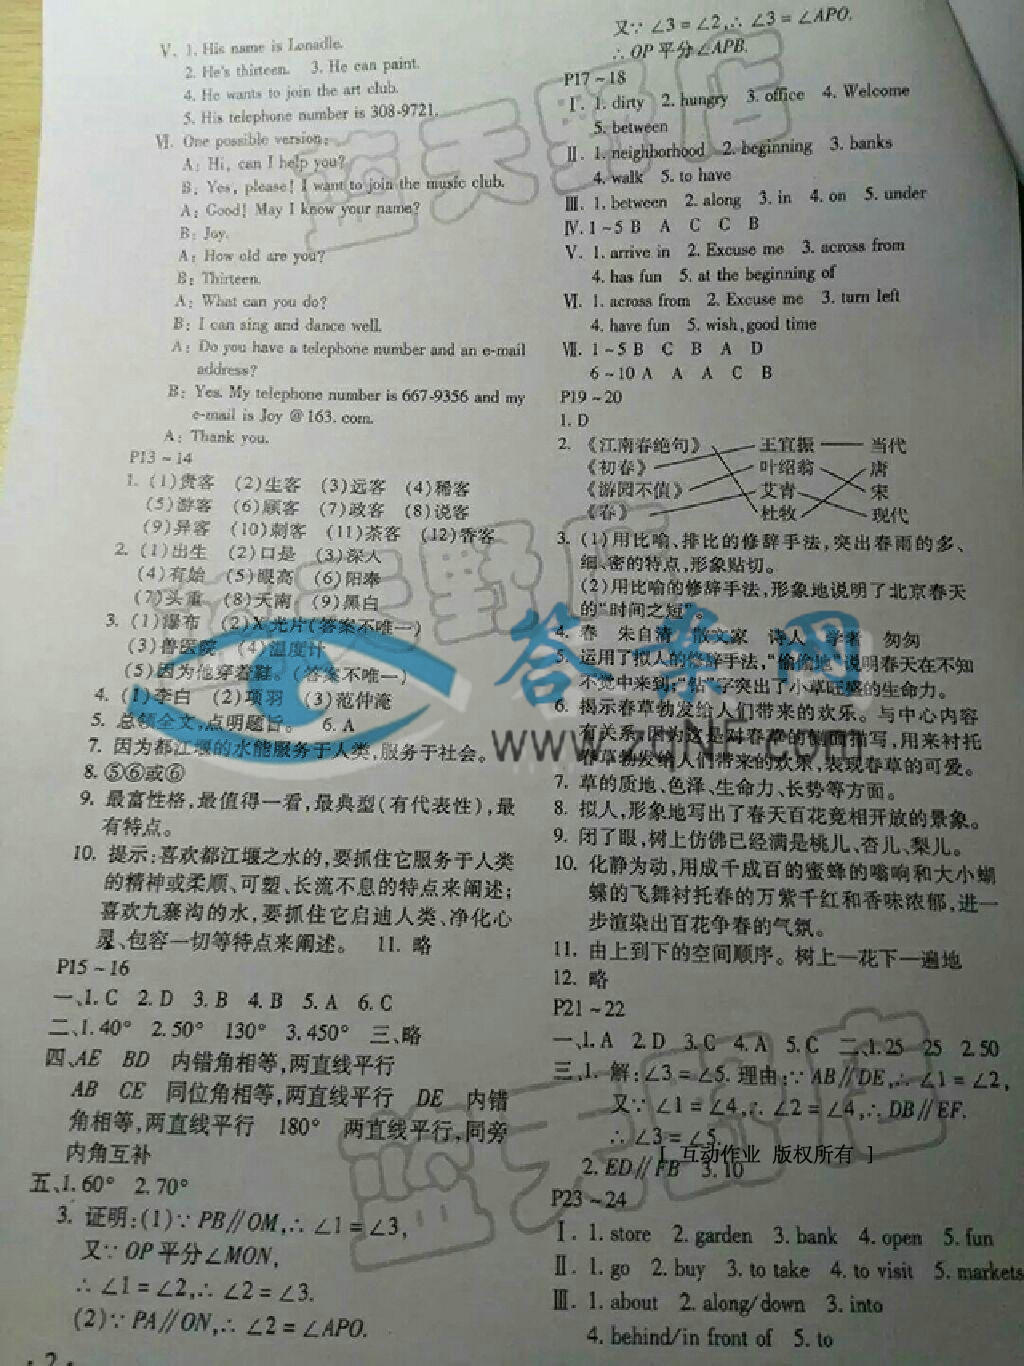 V. 1. His name is Lonadle.
2. He's thirteen. 3. He can paint.
4. He wants to join the art club.
5. His telephone number is 308-9721.
Ⅵ. One possible version:
A: Hi, can I help you?
B: Yes, please! I want to join the music club.
A: Good! May I know your name?
B: Joy.
A: How old are you?
B: Thirteen.
A: What can you do?
B: I can sing and dance well.
A: Do you have a telephone number and an e-mail
address?
B: Yes. My telephone number is 667-9356 and my
e-mail is Joy @ 163. com.
A: Thank you.
P13~14
1. (1)贵客 (2)生客 (3)远客 (4)稀客
(5)游客 (6)顾客 (7)政客 (8)说客
(9)异客 (10)刺客 (11)茶客 (12)香客
2. (1)出生 (2)口是 (3)深入
(4)有始 (5)眼高 (6)阳奉
(7)头重 (8)天南 (9)黑白
3. (1)瀑布 (2)X光片(答案不唯一)
(3)兽医院 (4)温度计
(5)因为他穿着鞋。(答案不唯一)
4. (1)李白 (2)项羽 (3)范仲淹
5. 总领全文,点明题旨。 6. A
7. 因为都江堰的水能服务于人类,服务于社会。
8. ⑤⑥或⑥
9. 最富性格,最值得一看,最典型(有代表性),最
有特点。
10. 提示:喜欢都江堰之水的,要抓住它服务于人类
的精神或柔顺、可塑、长流不息的特点来阐述;
喜欢九寨沟的水,要抓住它启迪人类、净化心
灵、包容一切等特点来阐述。 11. 略
P15~16
一、1. C 2. D 3. B 4. B 5. A 6. C
二、1. 40° 2. 50° 130° 3. 450° 三、略
四、AE BD 内错角相等,两直线平行
AB CE 同位角相等,两直线平行 DE 内错
角相等,两直线平行 180° 两直线平行,同旁
内角互补
五、1. 60° 2. 70°
3. 证明:(1)∵PB∥OM,∴∠1=∠3,
又∵OP平分∠MON,
∴∠1=∠2,∴∠2=∠3.
(2)∵PA∥ON,∴∠2=∠APO.
·2·
又∵∠3=∠2,∴∠3=∠APO.
∴OP平分∠APB.
P17~18
Ⅰ. 1. dirty 2. hungry 3. office 4. Welcome
5. between
Ⅱ. 1. neighborhood 2. beginning 3. banks
4. walk 5. to have
Ⅲ. 1. between 2. along 3. in 4. on 5. under
Ⅳ. 1~5 B A C C B
Ⅴ. 1. arrive in 2. Excuse me 3. across from
4. has fun 5. at the beginning of
Ⅵ. 1. across from 2. Excuse me 3. turn left
4. have fun 5. wish, good time
Ⅶ. 1~5 B C B A D
6~10 A A A C B
P19~20
1. D
2. 《江南春绝句》 王宜振 当代
《初春》 叶绍翁 唐
《游园不值》 艾青 宋
《春》 杜牧 现代
3. (1)用比喻、排比的修辞手法,突出春雨的多、
细、密的特点,形象贴切。
(2)用比喻的修辞手法,形象地说明了北京春天
的“时间之短”。
4. 春 朱自清 散文家 诗人 学者 匆匆
5. 运用了拟人的修辞手法,“偷偷地”说明春天在不知
不觉中来到;“钻”字突出了小草旺盛的生命力。
6. 揭示春草勃发给人们带来的欢乐。与中心内容
有关系,因为这是对春草的侧面描写,用来衬托
春草勃发给人们带来的欢乐,表现春草的可爱。
7. 草的质地、色泽、生命力、长势等方面。
8. 拟人,形象地写出了春天百花竞相开放的景象。
9. 闭了眼,树上仿佛已经满是桃儿、杏儿、梨儿。
10. 化静为动,用成千成百的蜜蜂的嗡响和大小蝴
蝶的飞舞衬托春的万紫千红和香味浓郁,进一
步渲染出百花争春的气氛。
11. 由上到下的空间顺序。树上—花下—遍地
12. 略
P21~22
一、1. A 2. D 3. C 4. A 5. C 二、1. 25 25 2. 50
三、1. 解:∠3=∠5. 理由:∵AB∥DE,∴∠1=∠2,
又∵∠1=∠4,∴∠2=∠4,∴DB∥EF.
∴∠3=∠5.
[ 互动作业 版权所有 ]
2. ED∥FB 3. 10
P23~24
Ⅰ. 1. store 2. garden 3. bank 4. open 5. fun
Ⅱ. 1. go 2. buy 3. to take 4. to visit 5. markets
Ⅲ. 1. about 2. along/down 3. into
4. behind/in front of 5. to
蓝天野店
蓝天野店
蓝天野店
答案网